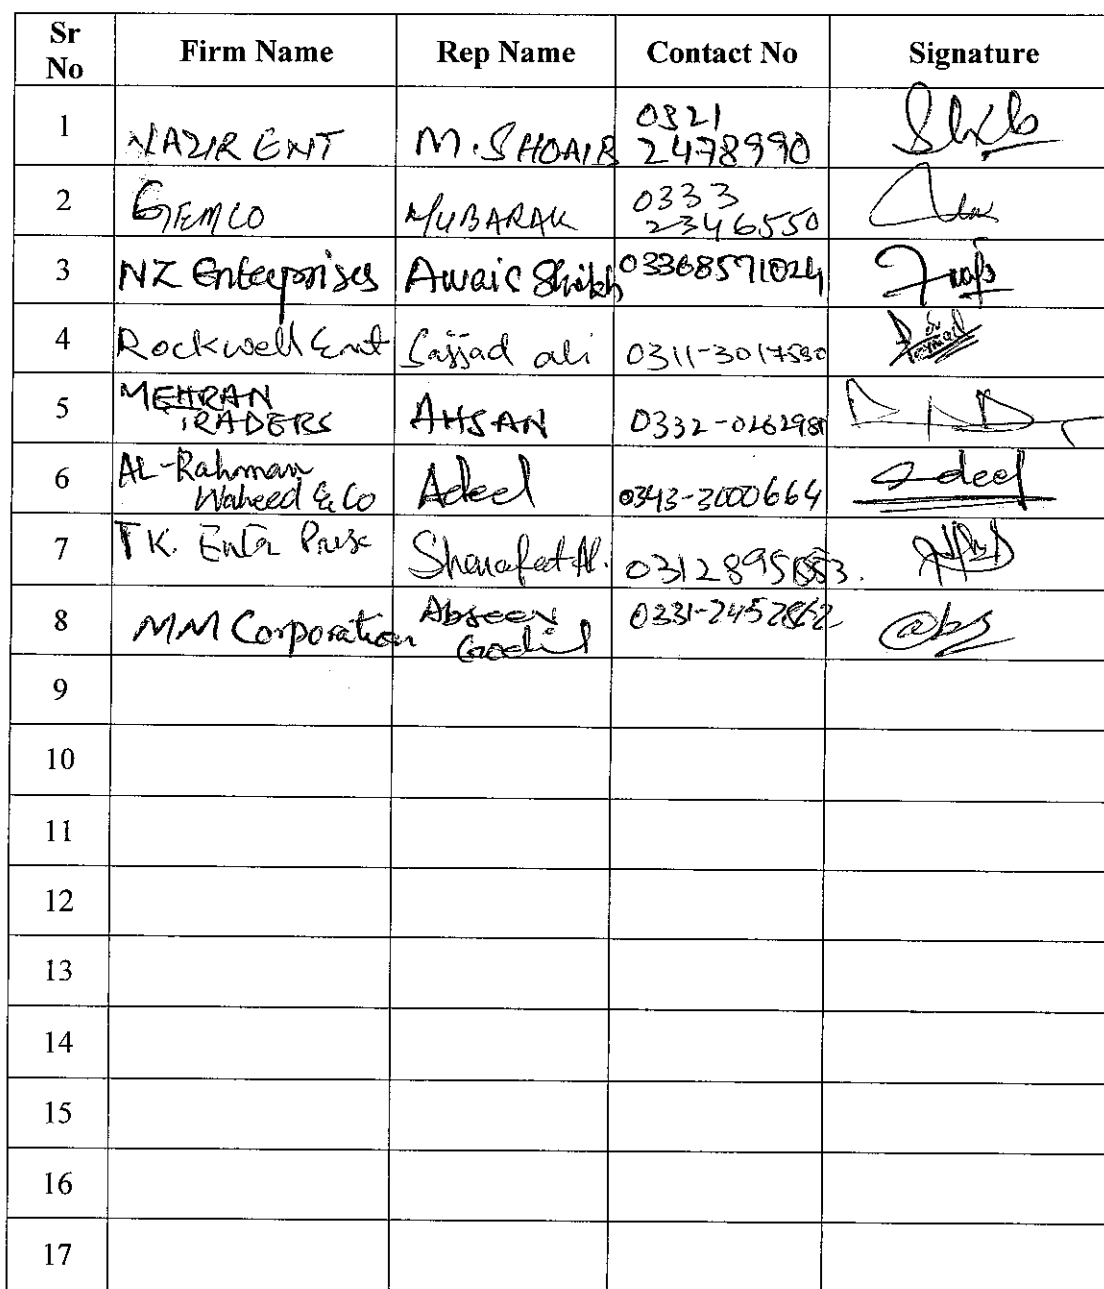 Sr No Firm Name Rep Name Contact No Signature
1 NAZIR ENT M. SHOAIB 0321 2478990
2 GEMCO MUBARAK 0333 2346550
3 NZ Enterprises Awais Shikh 03368571024
4 Rockwell Ent Sajjad ali 0311-3017580
5 MEHRAN TRADERS AHSAN
6 AL-Rahman Waheed & Co Adeel 0343-3000664 Adeel
7 TK. Sharafat
8 MM Corporation Abseen Godil
9
10
11
12
13
14
15
16
17